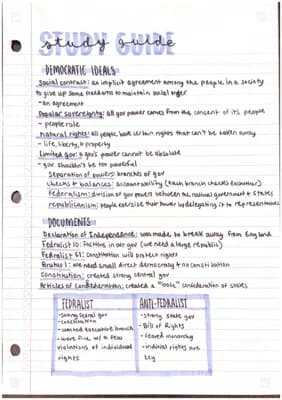 STUDY GUIDE
study guide
DEMOCRATIC IDEALS
Social contract: an implicit agreement among the people in a society
to give up some freedoms to maintain social order
- an agreement
Popular sovereignty: all gov power comes from the consent of its people
- people rule
natural rights: all people have certain rights that can't be taken away
- life, liberty, & property
Limited gov: a gov's power cannot be absolute
- gov shouldn't be too powerful
Separation of powers: branches of gov
checks & balances: accountability (each branch checks each other)
federalism: division of gov powers between the national government & states
republicanism: people exercise their power by delegating it to representatives
DOCUMENTS
Declaration of Independence: was made to break away from England
Federalist 10: factions in our gov (we need a large republic)
Federalist 51: constitution will protect rights
Brutus 1: we need small direct democracy & no constitution
Constitution: created strong central gov
Articles of Confederation: created a "loose" confederation of states
FEDERALIST
- strong federal gov
- constitution
- wanted executive branch
- were fine w/ a few
violations of individual
rights
ANTI-FEDERALIST
- strong state gov
- Bill of Rights
- feared monarchy
- rights are
key